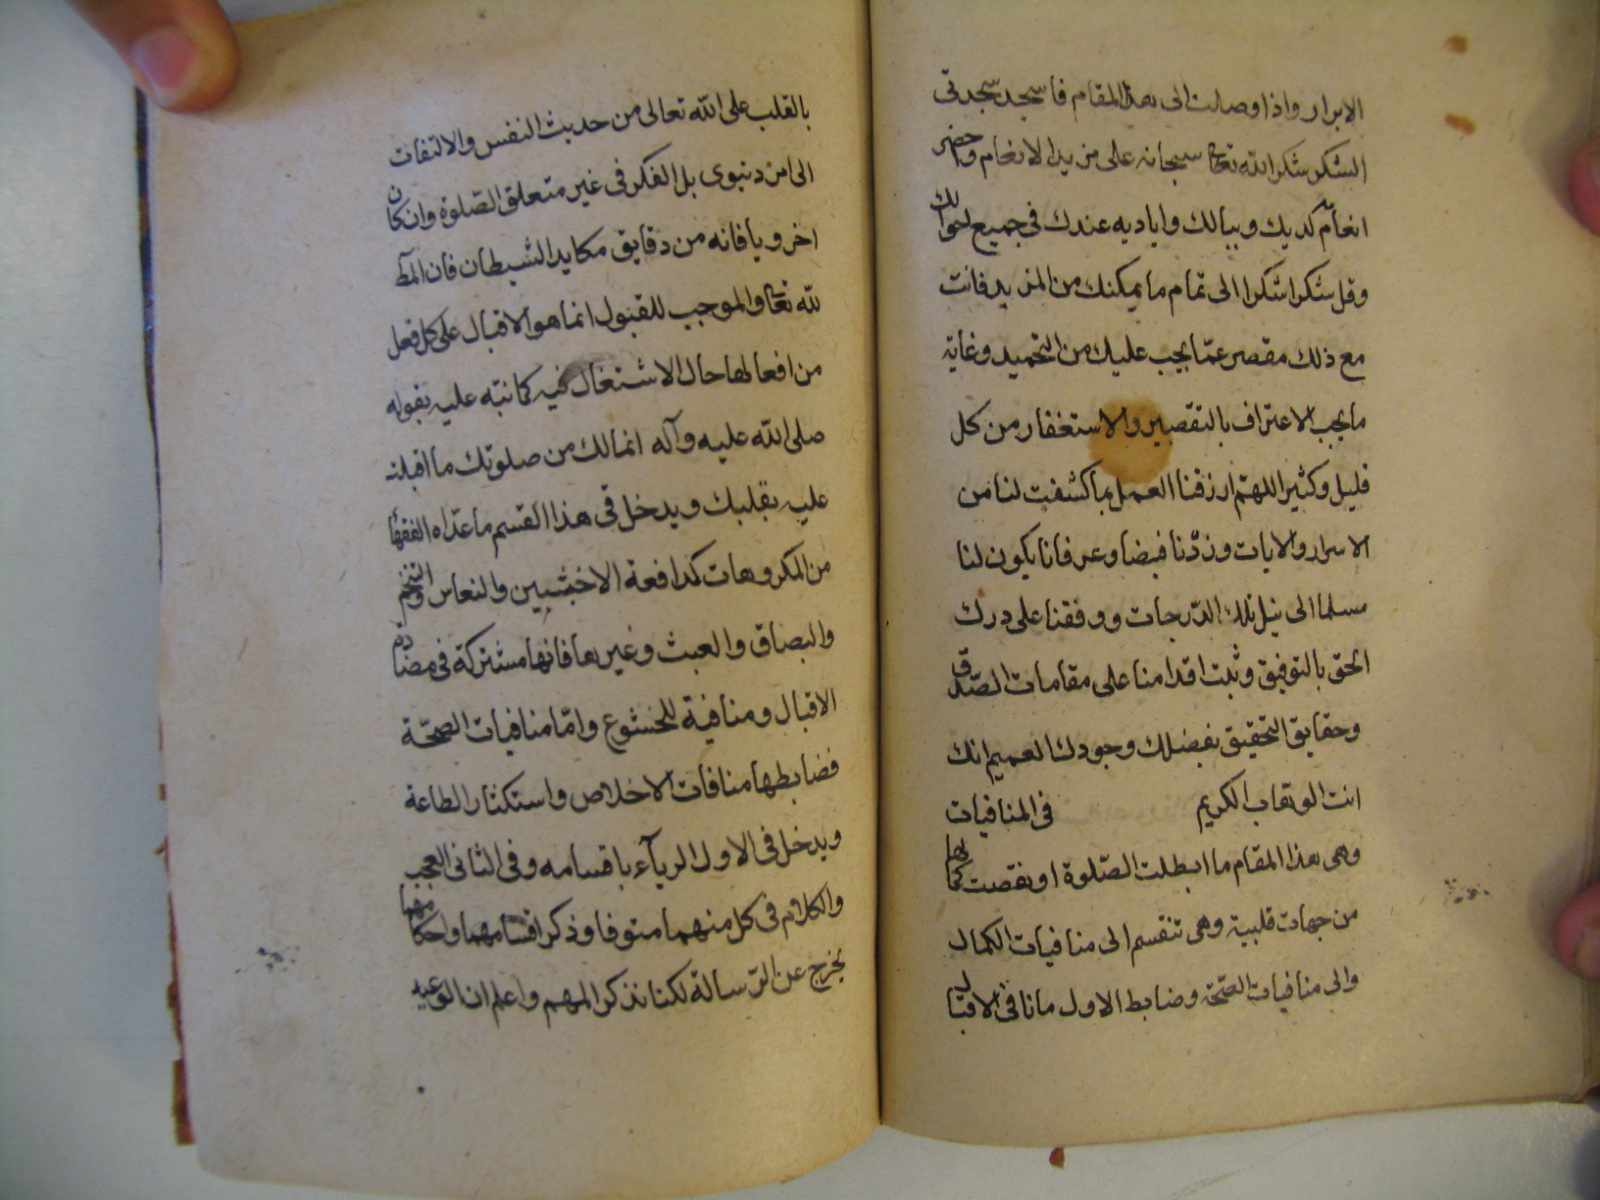 الابرار واذا وصلت الى هذا المقام فاسجد سجدتى
الشكر شكرا لله تعالى سبحانه على مزيد الانعام واحضر
انعامه لديك وببالك واياديه عندك فى جميع احوالك
وقل شكرا شكرا الى تمام ما يمكنك من المزيد فانت
مع ذلك مقصر عمّا يجب عليك من التحميد وغاية
ما يجب الاعتراف بالتقصير والاستغفار من كل
قليل وكثير اللهمّ ارزقنا العمل بما كشفت لنا من
الاسرار والايات وزدنا فيضا وعرفانا يكون لنا
مسلما الى نيل تلك الدّرجات ووفقنا على درك
الحق بالتوفيق وثبت اقدامنا على مقامات الصّدق
وحقايق التحقيق بفضلك وجودك العميم انك
انت الوهاب الكريم فى المنافيات
وهى هذا المقام ما ابطلت الصّلوة او نقصت كمالها
من جهات قلبية وهى تنقسم الى منافيات الكمال
والى منافيات الصّحّة وضابط الاول ما نافى الاقبال
بالقلب على الله تعالى من حديث النفس والالتفات
الى امر دنيوى بل الفكر فى غير متعلق الصّلوة وان كان
اخرويا فانه من دقايق مكايد الشيطان فان المط
لله تعالى والموجب للقبول انما هو الاقبال على كل فعل
من افعالها حال الاشتغال فيه كما نبّه عليه بقوله
صلى الله عليه وآله انما لك من صلوتك ما اقبلت
عليه بقلبك ويدخل فى هذا القسم ما عدّاه الفقهآ
من المكروهات كمدافعة الاخبثين والنعاس والتنخم
والبصاق والعبث وغيرها فانها مشتركة فى مضادة
الاقبال ومنافية للخشوع وامّا منافيات الصحّة
فضابطها منافات الاخلاص واستكثار الطاعة
ويدخل فى الاول الريآء باقسامه وفى الثانى العجب
والكلام فى كل منهما متوفا وذكر اقسامهما واحكامهما
يخرج عن الرّسالة لكنا نذكر المهم واعلم ان الوعيد